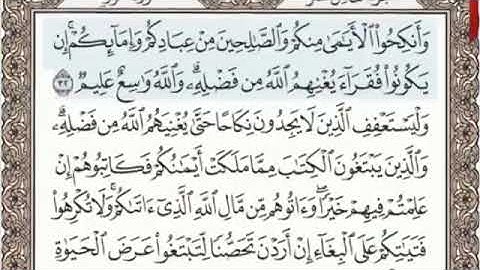 وَأَنكِحُوا۟ ٱلْأَيَـٰمَىٰ مِنكُمْ وَٱلصَّـٰلِحِينَ مِنْ عِبَادِكُمْ وَإِمَآئِكُمْ ۚ إِن
يَكُونُوا۟ فُقَرَآءَ يُغْنِهِمُ ٱللَّهُ مِن فَضْلِهِۦ ۗ وَٱللَّهُ وَٰسِعٌ عَلِيمٌ ٣٢
وَلْيَسْتَعْفِفِ ٱلَّذِينَ لَا يَجِدُونَ نِكَاحًا حَتَّىٰ يُغْنِيَهُمُ ٱللَّهُ مِن فَضْلِهِۦ ۗ
وَٱلَّذِينَ يَبْتَغُونَ ٱلْكِتَـٰبَ مِمَّا مَلَكَتْ أَيْمَـٰنُكُمْ فَكَاتِبُوهُمْ إِنْ
عَلِمْتُمْ فِيهِمْ خَيْرًا ۖ وَءَاتُوهُم مِّن مَّالِ ٱللَّهِ ٱلَّذِىٓ ءَاتَىٰكُمْ ۚ وَلَا تُكْرِهُوا۟
فَتَيَـٰتِكُمْ عَلَى ٱلْبِغَآءِ إِنْ أَرَدْنَ تَحَصُّنًا لِّتَبْتَغُوا۟ عَرَضَ ٱلْحَيَوٰةِ